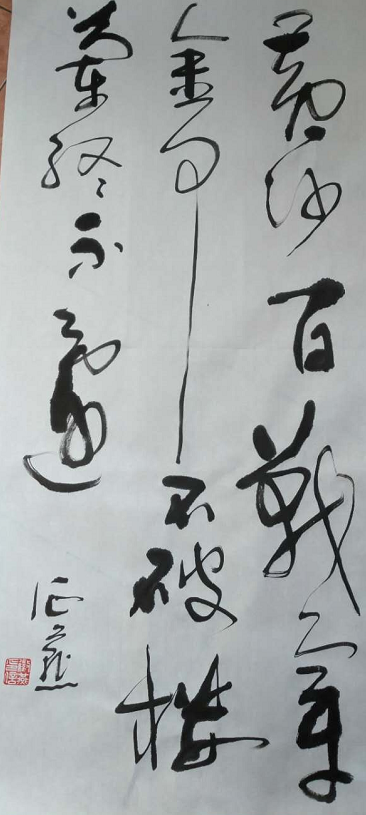 黄沙百戰穿
金甲不破樓
蘭終不還